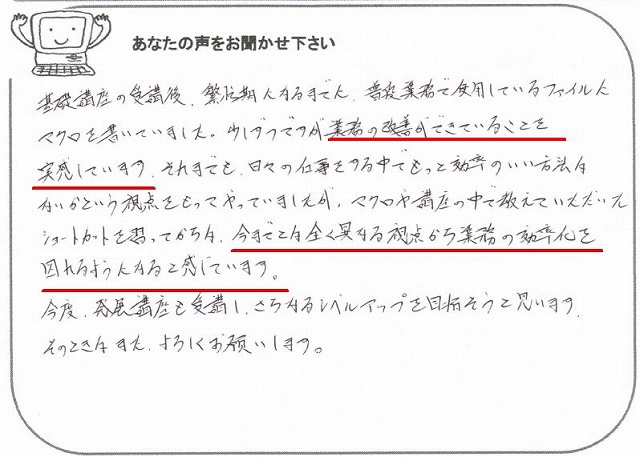 あなたの声をお聞かせ下さい
基礎講座の受講後、繁忙期になるまでに、普段業務で使用しているファイルに
マクロを書いていました。少しずつですが業務の改善ができていることを
実感しています。それまでも、日々の仕事をする中でもっと効率のいい方法は
ないかという視点をもってやっていましたが、マクロや講座の中で教えていただいた
ショートカットを習ってからは、今までとは全く異なる視点から業務の効率化を
図れるようになると感じています。
今度、発展講座も受講し、さらなるレベルアップを目指そうと思います。
そのときはまた、よろしくお願いします。